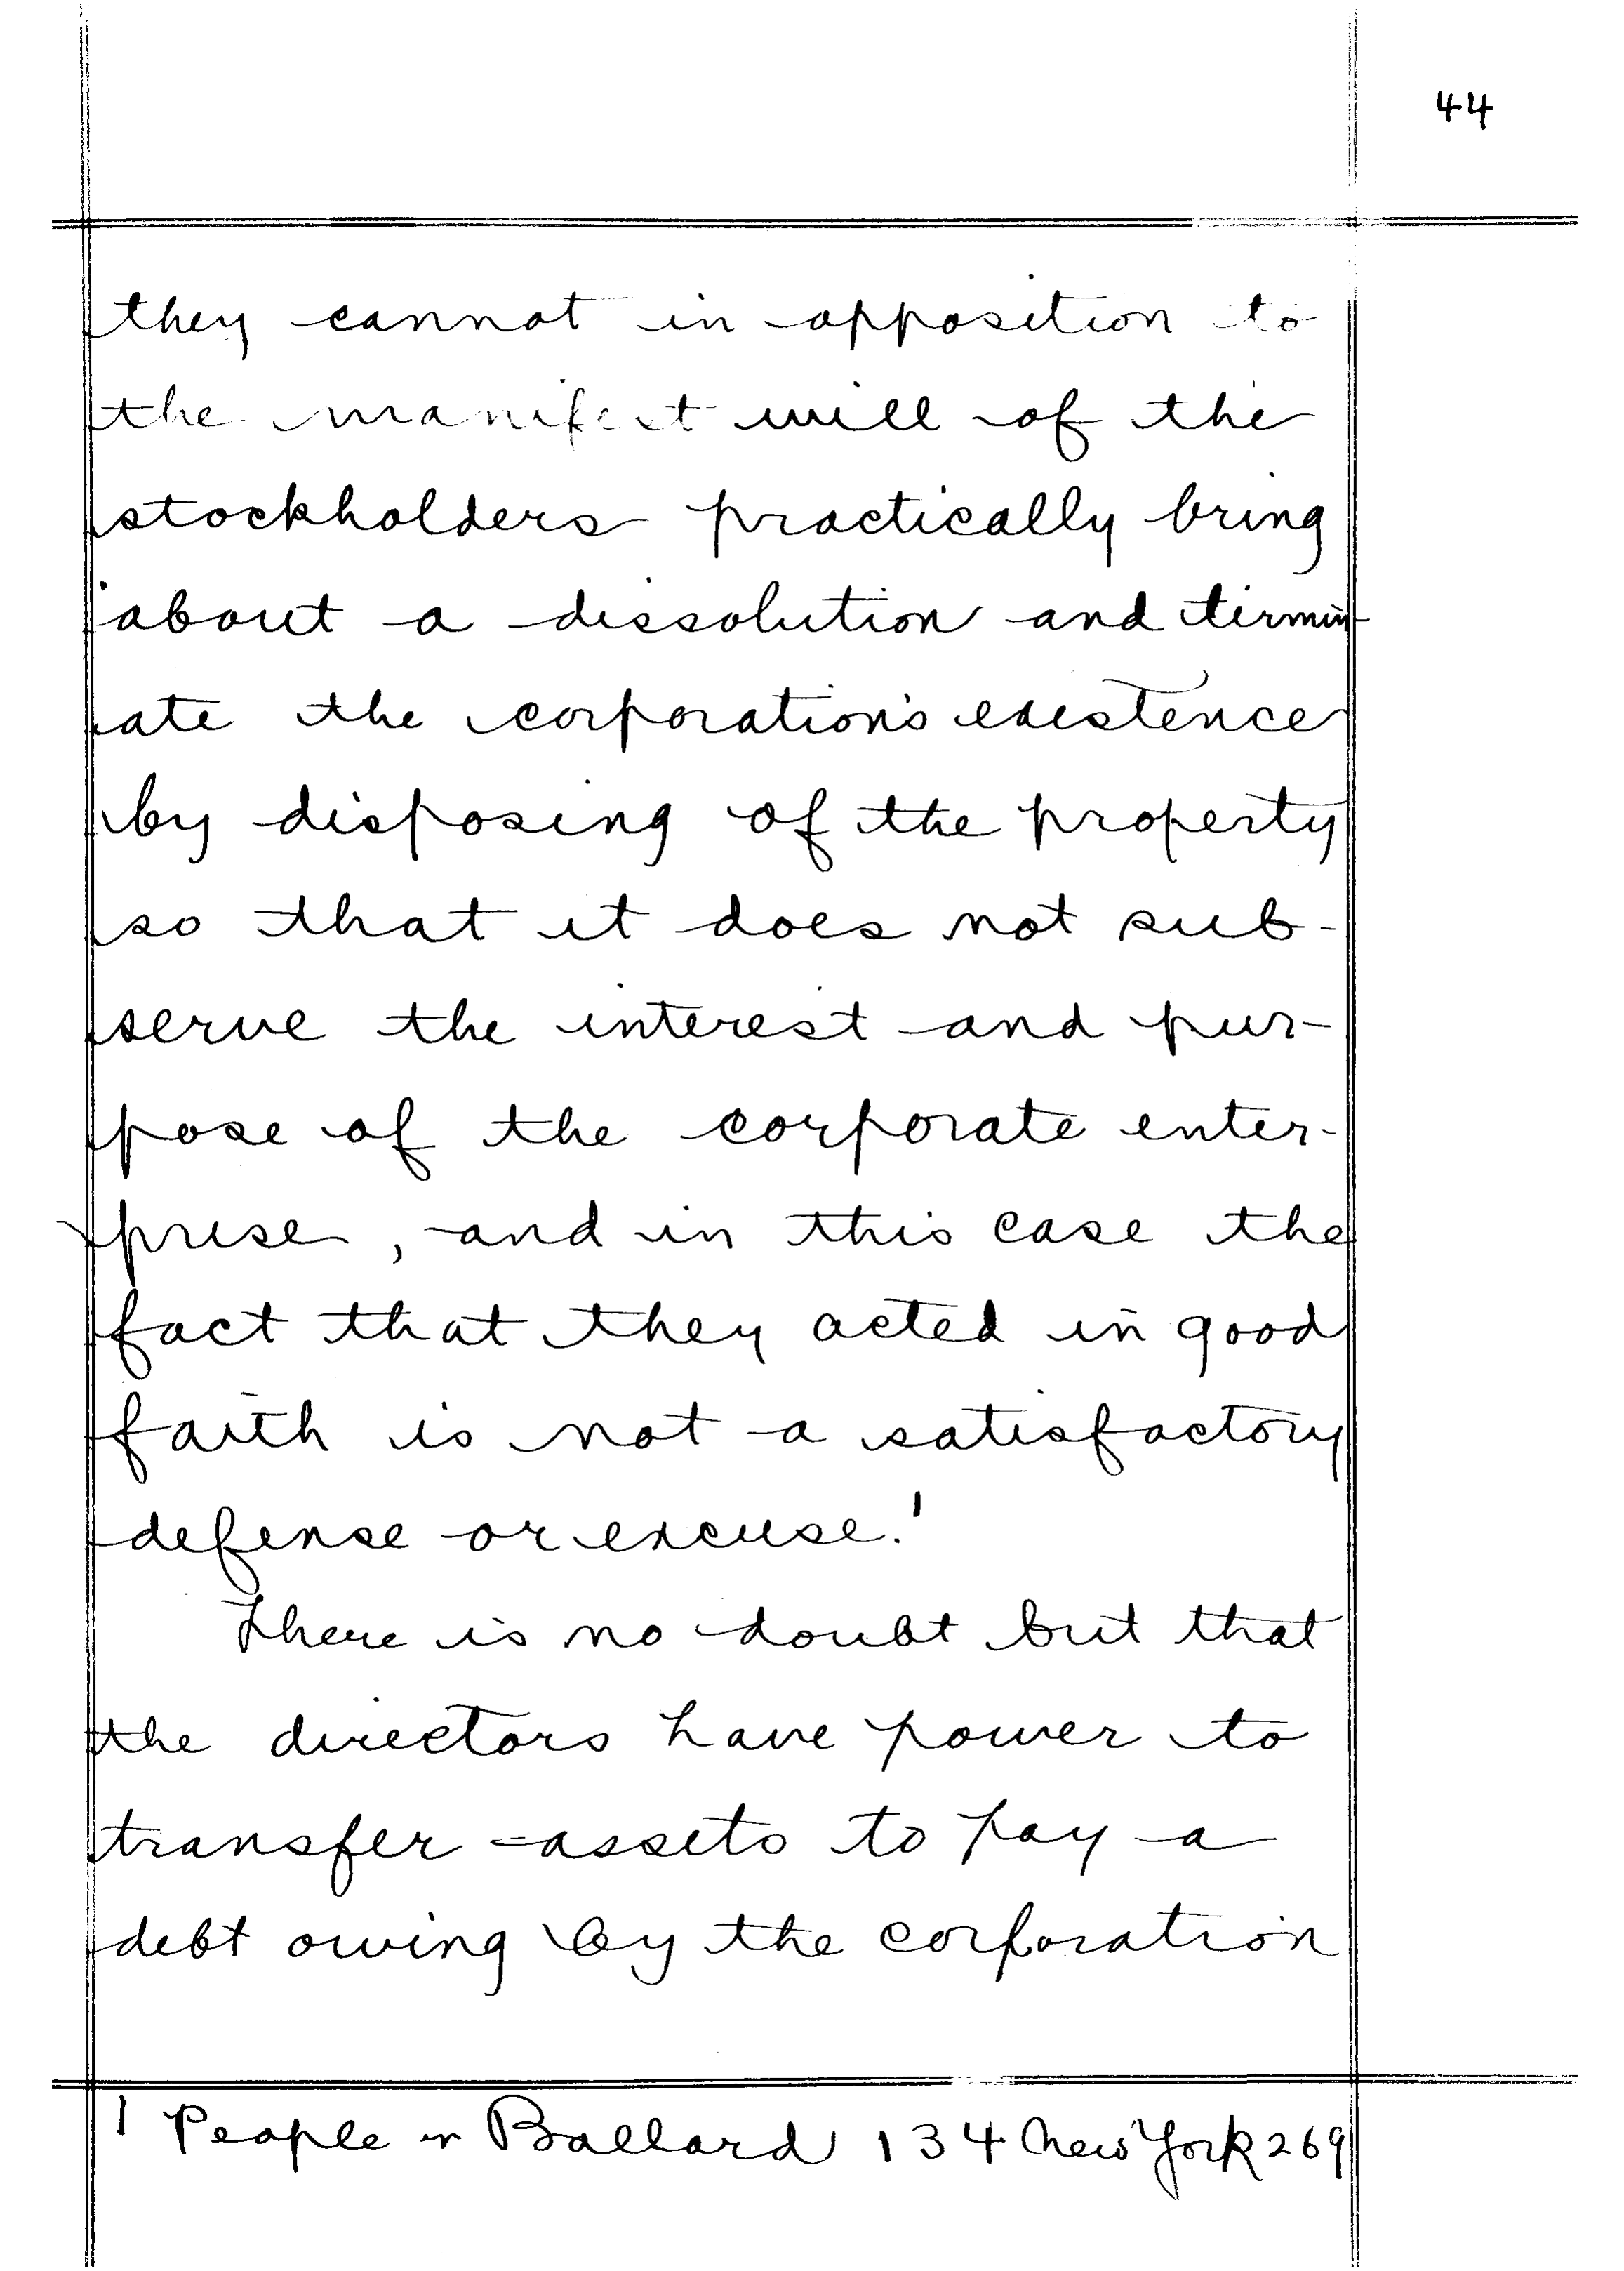 44
they cannot in opposition to
the manifest will of the
stockholders practically bring
about a dissolution and termin-
ate the corporation's existence
by disposing of the property
so that it does not sub-
serve the interest and pur-
pose of the corporate enter-
prise, and in this case the
fact that they acted in good
faith is not a satisfactory
defense or excuse.¹
There is no doubt but that
the directors have power to
transfer assets to pay a
debt owing by the corporation
¹ People v Ballard 134 New York 269